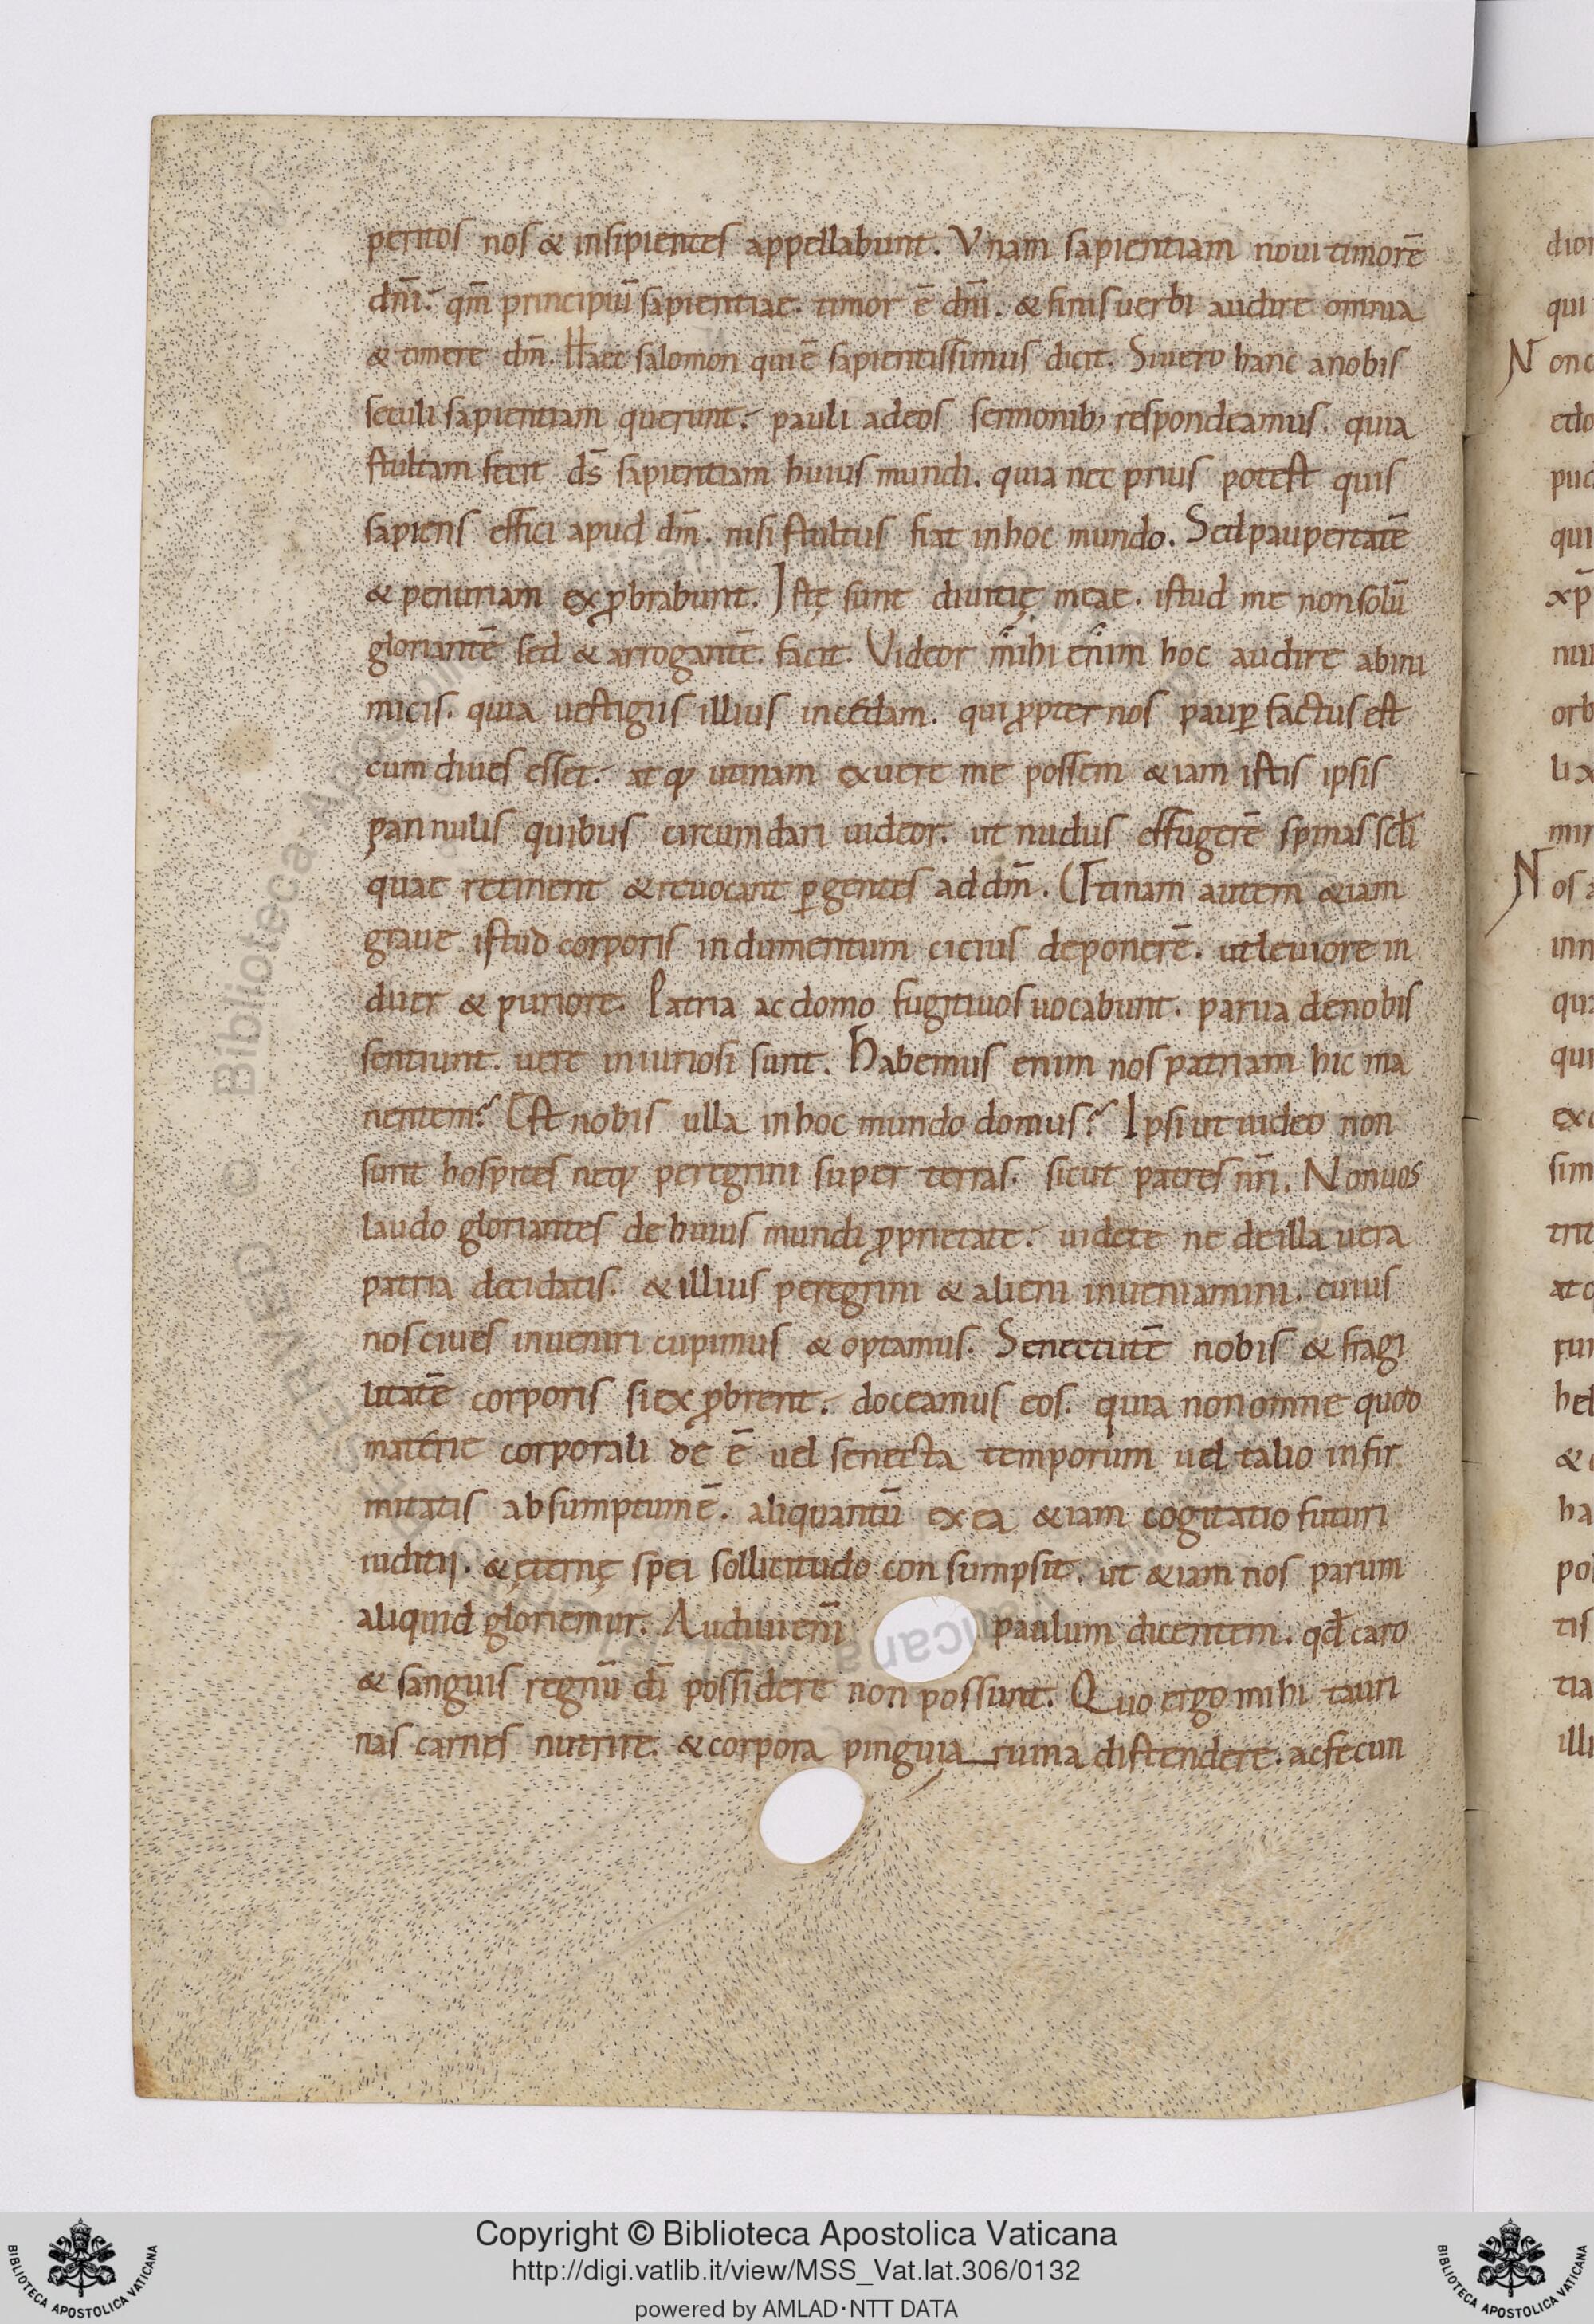 peritos nos & insipientes appellabunt. Vnam sapientiam noui timorē
dn̄i. qm̄ principiū sapientiae. timor ē dn̄i. & finis uerbi audire omnia
& timere dn̄m. Haec salomon qui ē sapientissimus dicit. Siuero hanc anobis
seculi sapientiam querunt. pauli adeos sermonib; respondeamus. quia
stultam fecit d̄s sapientiam huius mundi. quia nec prius potest quis
sapiens effici apud dm̄. nisi stultus fiat inhoc mundo. Sed paupertatē
& penuriam exꝓbrabunt. Istę sunt diuitię meae. istud me nonsolū
gloriantē sed & arrogantē. facit. Videor mihi enim hoc audire abini
micis. quia uestigiis illius incedam. qui ꝓpter nos paup̲ factus est
cum diues esset. atq; utinam exuere me possem &iam istis ipsis
pannulis quibus circumdari uideor. ut nudus effugerē spinas sc̄li
quae retinent & reuocant ꝑgentes ad dm̄. Utinam autem &iam
graue istud corporis indumentum cicius deponerē. utleuiore in
duer & puriore. Patria ac domo fugitiuos uocabunt. parua denobis
sentiunt. uere iniuriosi sunt. Habemus enim nos patriam hic ma
nentem? Est nobis ulla inhoc mundo domus? Ipsi ut uideo non
sunt hospites neq; peregrini super terras. sicut patres nr̄i. Nonuos
laudo gloriantes de huius mundi ꝓprietate. uidete ne deilla uera
patria decidatis. & illius peregrini & alieni inueniamini. cuius
nos ciues inueniri cupimus & optamus. Senectutē nobis & fragi
litatē corporis si exꝓbrent. doceamus eos. quia nonomne quod
materie corporali de ē uel senecta temporum uel talio infir
mitatis absumptum ē. aliquantū ex ea &iam cogitatio futuri
iudicij. & ęternę spei sollicitudo consumpsit. ut &iam nos parum
aliquid gloriemur. Audiui eni̅ paulum dicentem. qd̄ caro
& sanguis regnū dī possidere non possunt. Quo ergo mihi tauri
nas carnes nutrire. & corpora pinguia ruina distendere. ac fecun
dior
qui
N onc
edo
puc
qui
xp̄
nu
orb
li x
mir
N os a
inn
qua
qui
exc
sim
trit
at c
fur
hel
& i
ha
pol
tis
tia
illi
Copyright © Biblioteca Apostolica Vaticana
http://digi.vatlib.it/view/MSS_Vat.lat.306/0132
powered by AMLAD·NTT DATA
BIBLIOTECA APOSTOLICA VATICANA
BIBLIOTECA APOSTOLICA VATICANA